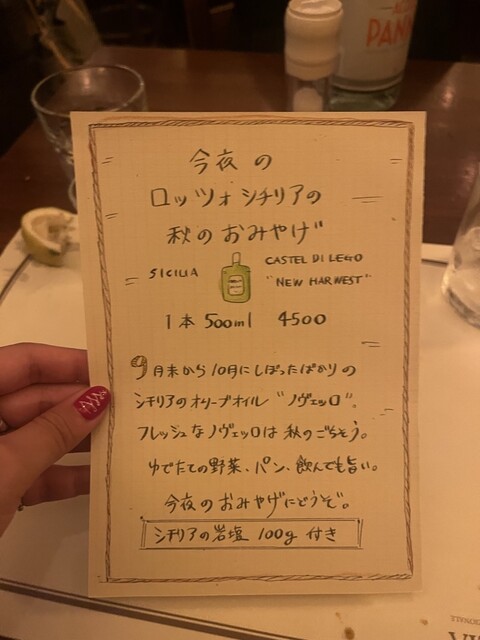 PANN
今夜の
ロッツォシチリアの
秋のおみやげ
SICILIA
CASTEL DI LEGO
"NEW HARWEST"
1本 500ml 4500
9月末から10月にしぼったばかりの
シチリアのオリーブオイル "ノヴェッロ"。
フレッシュなノヴェッロは秋のごちそう。
ゆでたての野菜、パン、飲んでも旨い。
今夜のおみやげにどうぞ。
シチリアの岩塩 100g 付き